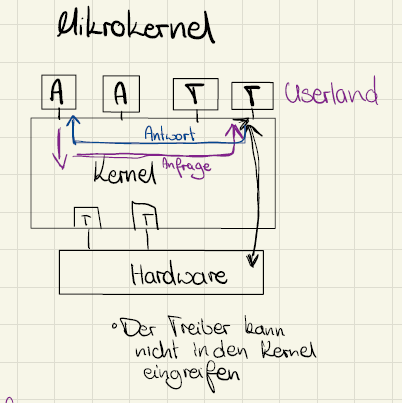 Mikrokernel
A A T T Userland
Antwort
Anfrage
Kernel
T T
Hardware
Der Treiber kann
nicht in den Kernel
eingreifen